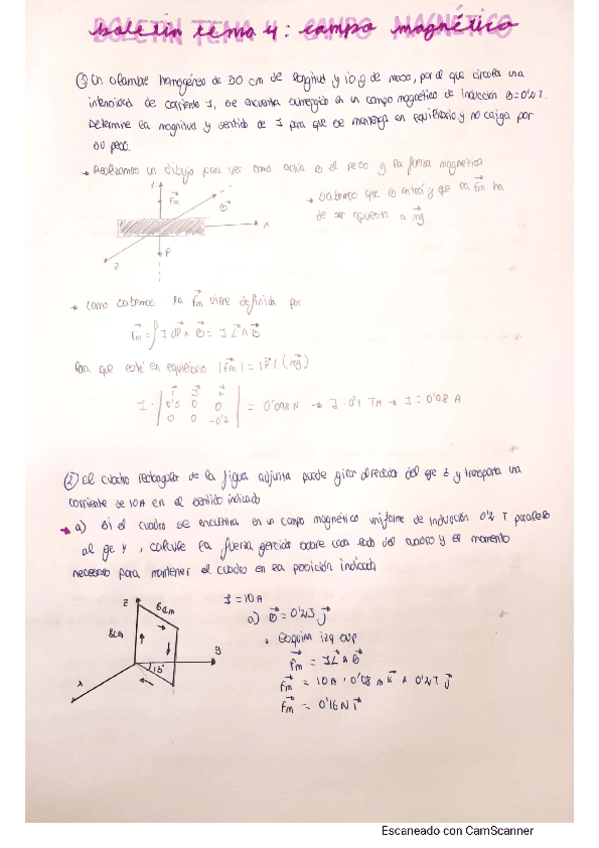 boletín tema 4: campo magnético
① Un alambre homogéneo de 50 cm de longitud y 10 g de masa, por el que circula una
intensidad de corriente I, se encuentra sumergido en un campo magnético de inducción B=0'2 T.
Determine la magnitud y sentido de I para que se mantenga en equilibrio y no caiga por
su peso.
→ Realizamos un dibujo para ver como actúa el peso y la fuerza magnética
→ sabemos que entra y que la Fm ha
de ser opuesta a mg
Y
Fm
B
P
Z
→ como sabemos la Fm viene definida por
Fm = ∫ I dl ∧ B = I L ∧ B
Para que esté en equilibrio |Fm| = |P| (mg)
I · | i j k | 0'5 0 0 | 0 0 -0'2 | = 0'098 N → I · 0'1 Tm → I = 0'98 A
② El cuadro rectangular de la figura adjunta puede girar alrededor del eje Z y transporta una
corriente de 10A en el sentido indicado
→ a) Si el cuadro se encuentra en un campo magnético uniforme de inducción 0'2 T paralelo
al eje Y, calcule la fuerza ejercida sobre cada lado del cuadro y el momento
necesario para mantener el cuadro en la posición indicada
z
6cm
8cm
y
x
I = 10 A
a) B = 0'2 j
Fm = I L ∧ B
Fm = 10A · 0'08 m k ∧ 0'2 T j
Fm = 0'16 N i
Escaneado con CamScanner